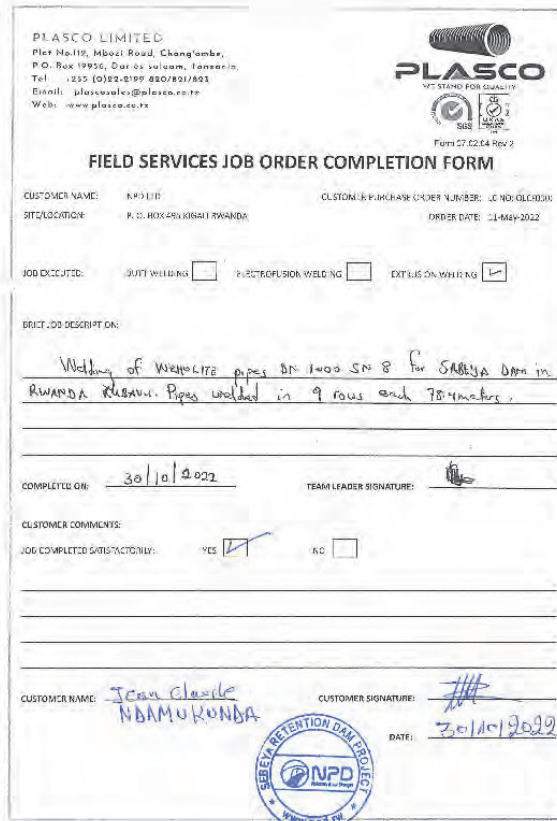 PLASCO LIMITED
Plot No.112, Mbozi Road, Chang'ombe,
P.O. Box 19956, Dar es salaam, Tanzania
Tel
Email: plascosales@plasco.co.tz
Web: www.plasco.co.tz
PLASCO
WE STAND FOR QUALITY
SGS
Form 07.02.04 Rev 2
FIELD SERVICES JOB ORDER COMPLETION FORM
CUSTOMER NAME: NPD LTD
CUSTOMER PURCHASE ORDER NUMBER: LC NO:
SITE/LOCATION: P. O. BOX KIGALI RWANDA
ORDER DATE: 11-May-2022
JOB EXECUTED: BUTT WELDING ELECTROFUSION WELDING EXTRUSION WELDING
BRIEF JOB DESCRIPTION:
Welding of WEHOLITE pipes DN 1000 SN 8 for DAM in
RWANDA Pipes welded in 9 rows each 78.4meters.
COMPLETED ON: 30/10/2022
TEAM LEADER SIGNATURE:
CUSTOMER COMMENTS:
JOB COMPLETED SATISFACTORILY: YES NO
CUSTOMER NAME: Jean Claude
NDAMUKUNDA
CUSTOMER SIGNATURE:
DATE: 30/10/2022
SEBEYA RETENTION DAM PROJECT
NPD